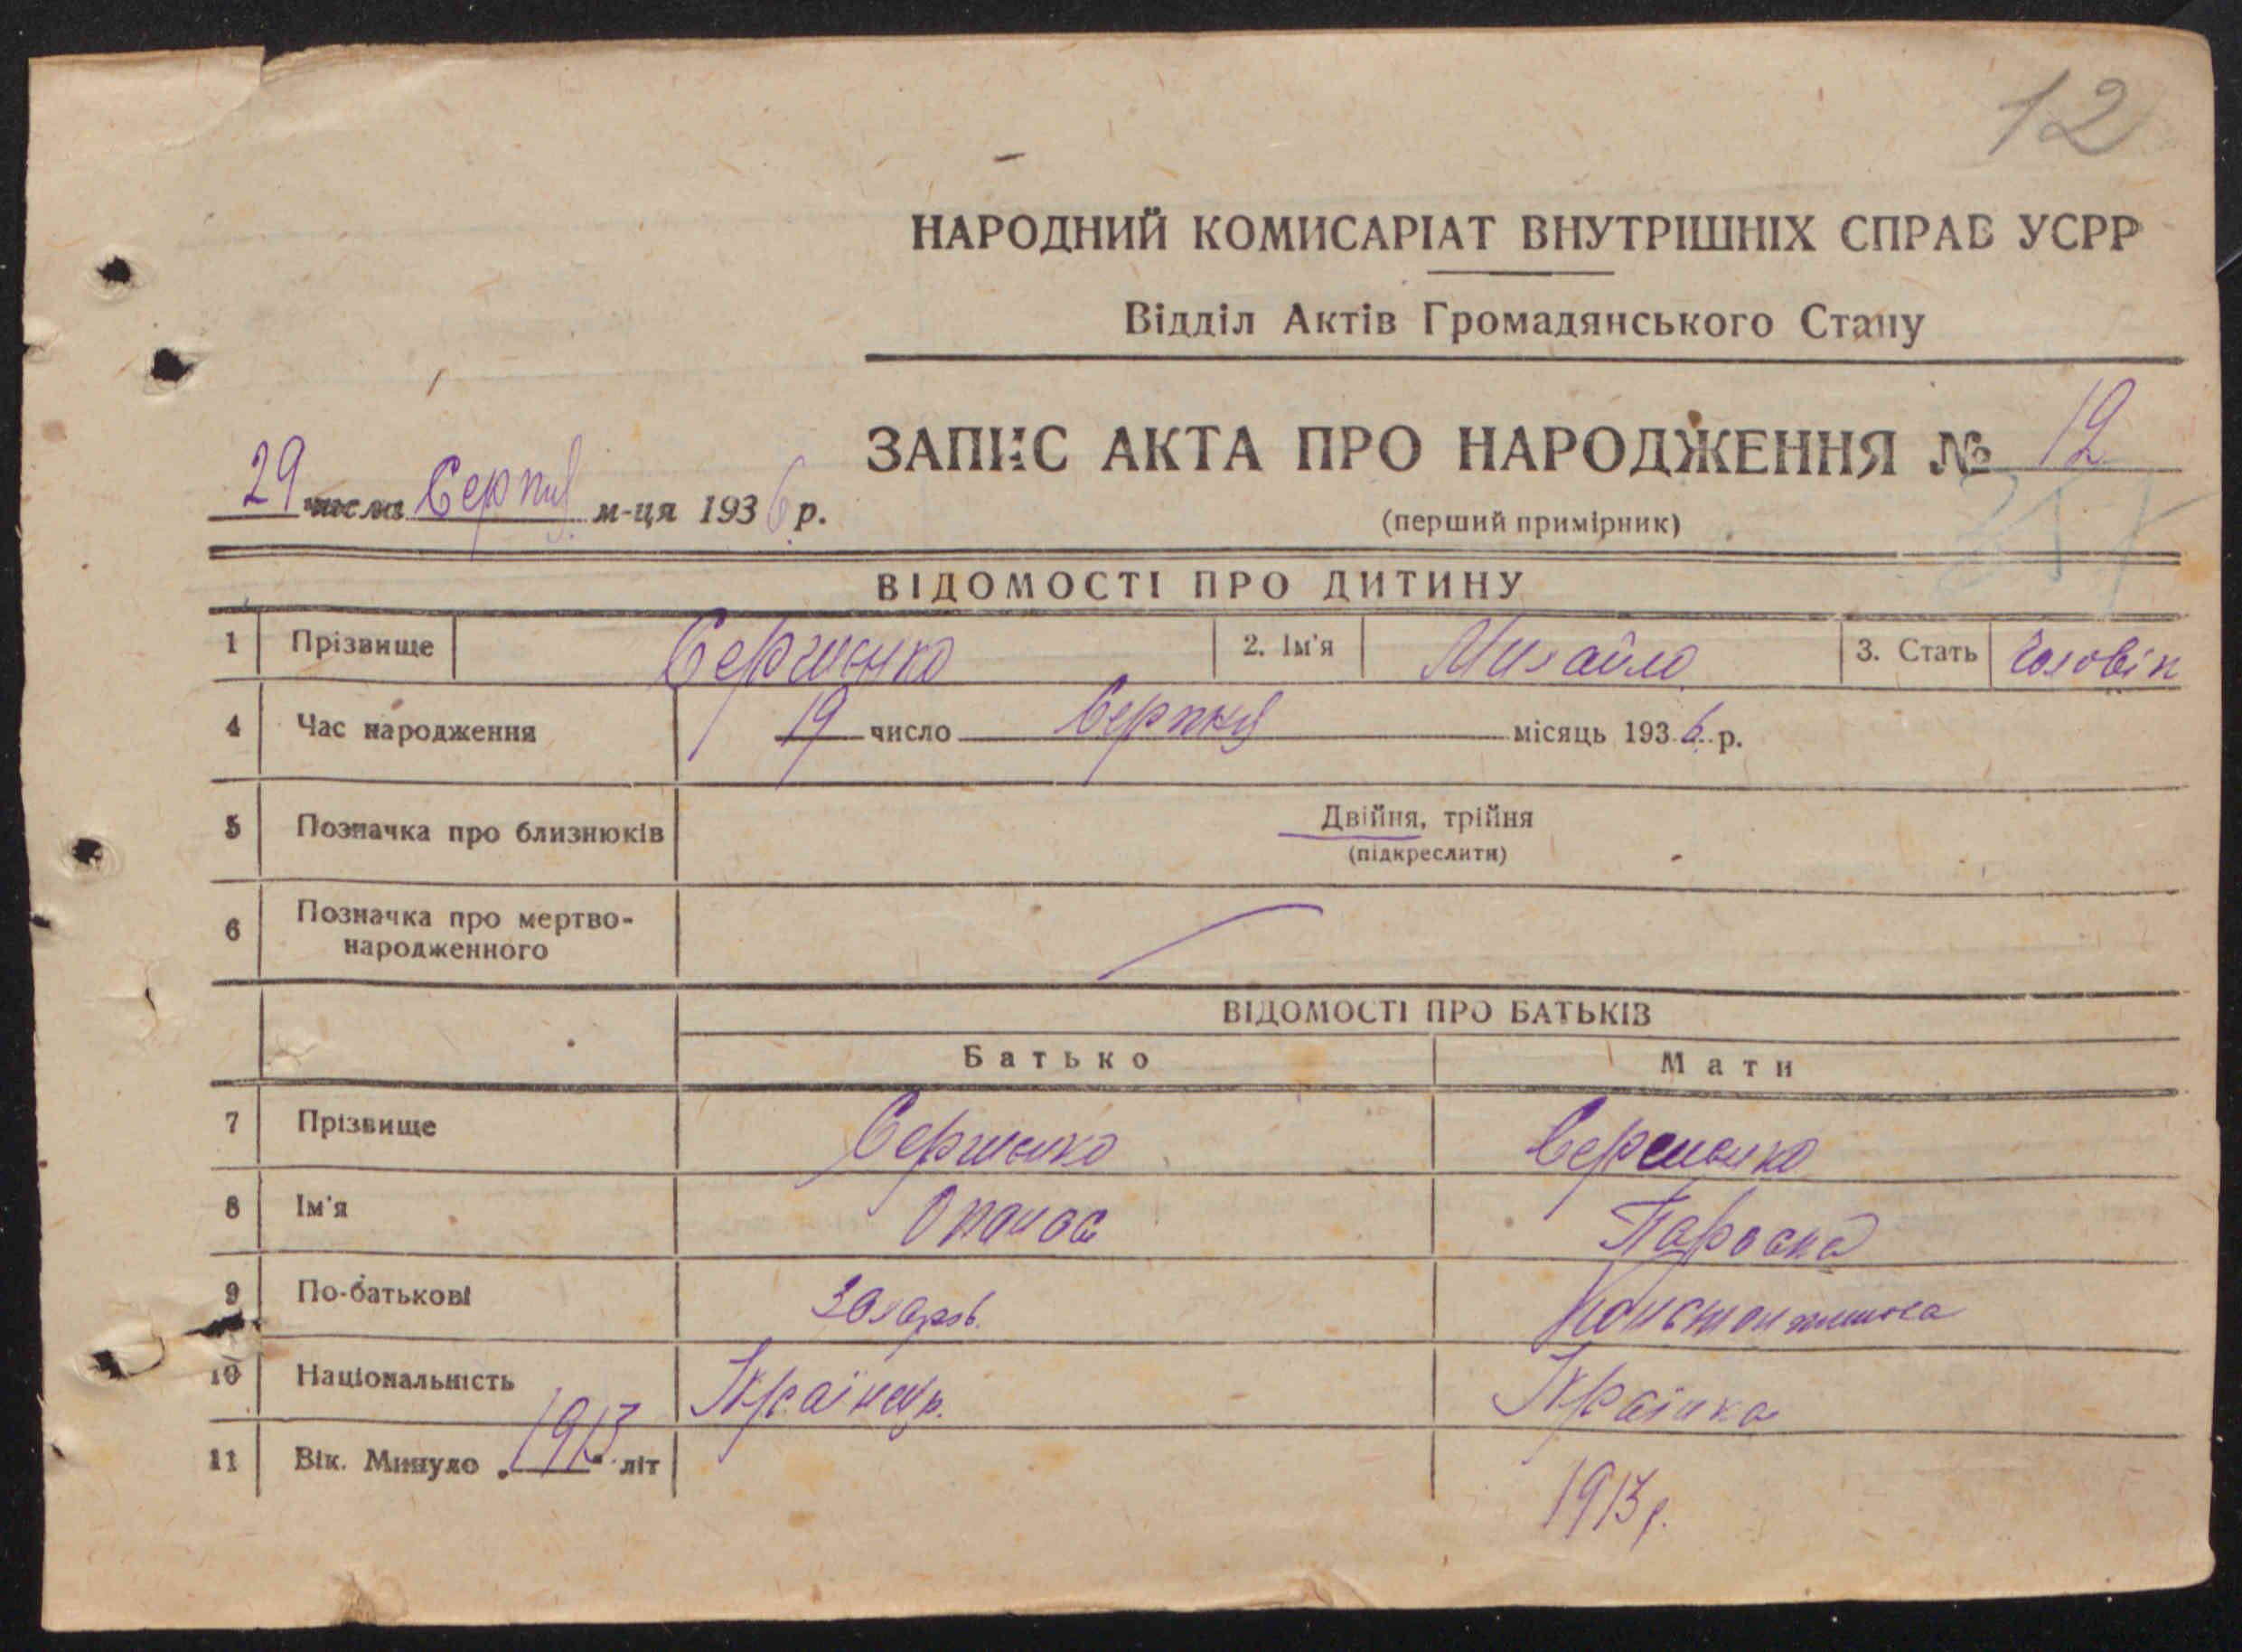 12
НАРОДНИЙ КОМИСАРІАТ ВНУТРІШНІХ СПРАВ УСРР
Відділ Актів Громадянського Стану
ЗАПИС АКТА ПРО НАРОДЖЕННЯ № 12
29 числа Серпня м-ця 1936 р.
(перший примірник)
ВІДОМОСТІ ПРО ДИТИНУ
1 Прізвище Сергиенко 2. Ім'я Михайло 3. Стать Чоловіч
4 Час народження 19 число Серпня місяць 1936 р.
5 Позначка про близнюків Двійня, трійня
(підкреслити)
6 Позначка про мертво-
народженного
ВІДОМОСТІ ПРО БАТЬКІВ
Батько Мати
7 Прізвище Сергиенко Сергиенко
8 Ім'я Опанас Параска
9 По-батькові Захаров. Константинова
10 Національність Украінка
11 Вік. Минуло 1913 літ 1913 р.